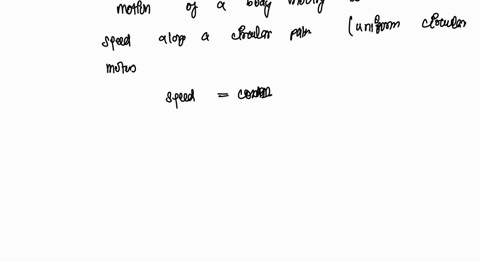 motion of a body moving
speed along a circular path (uniform circular
motion
speed = constant